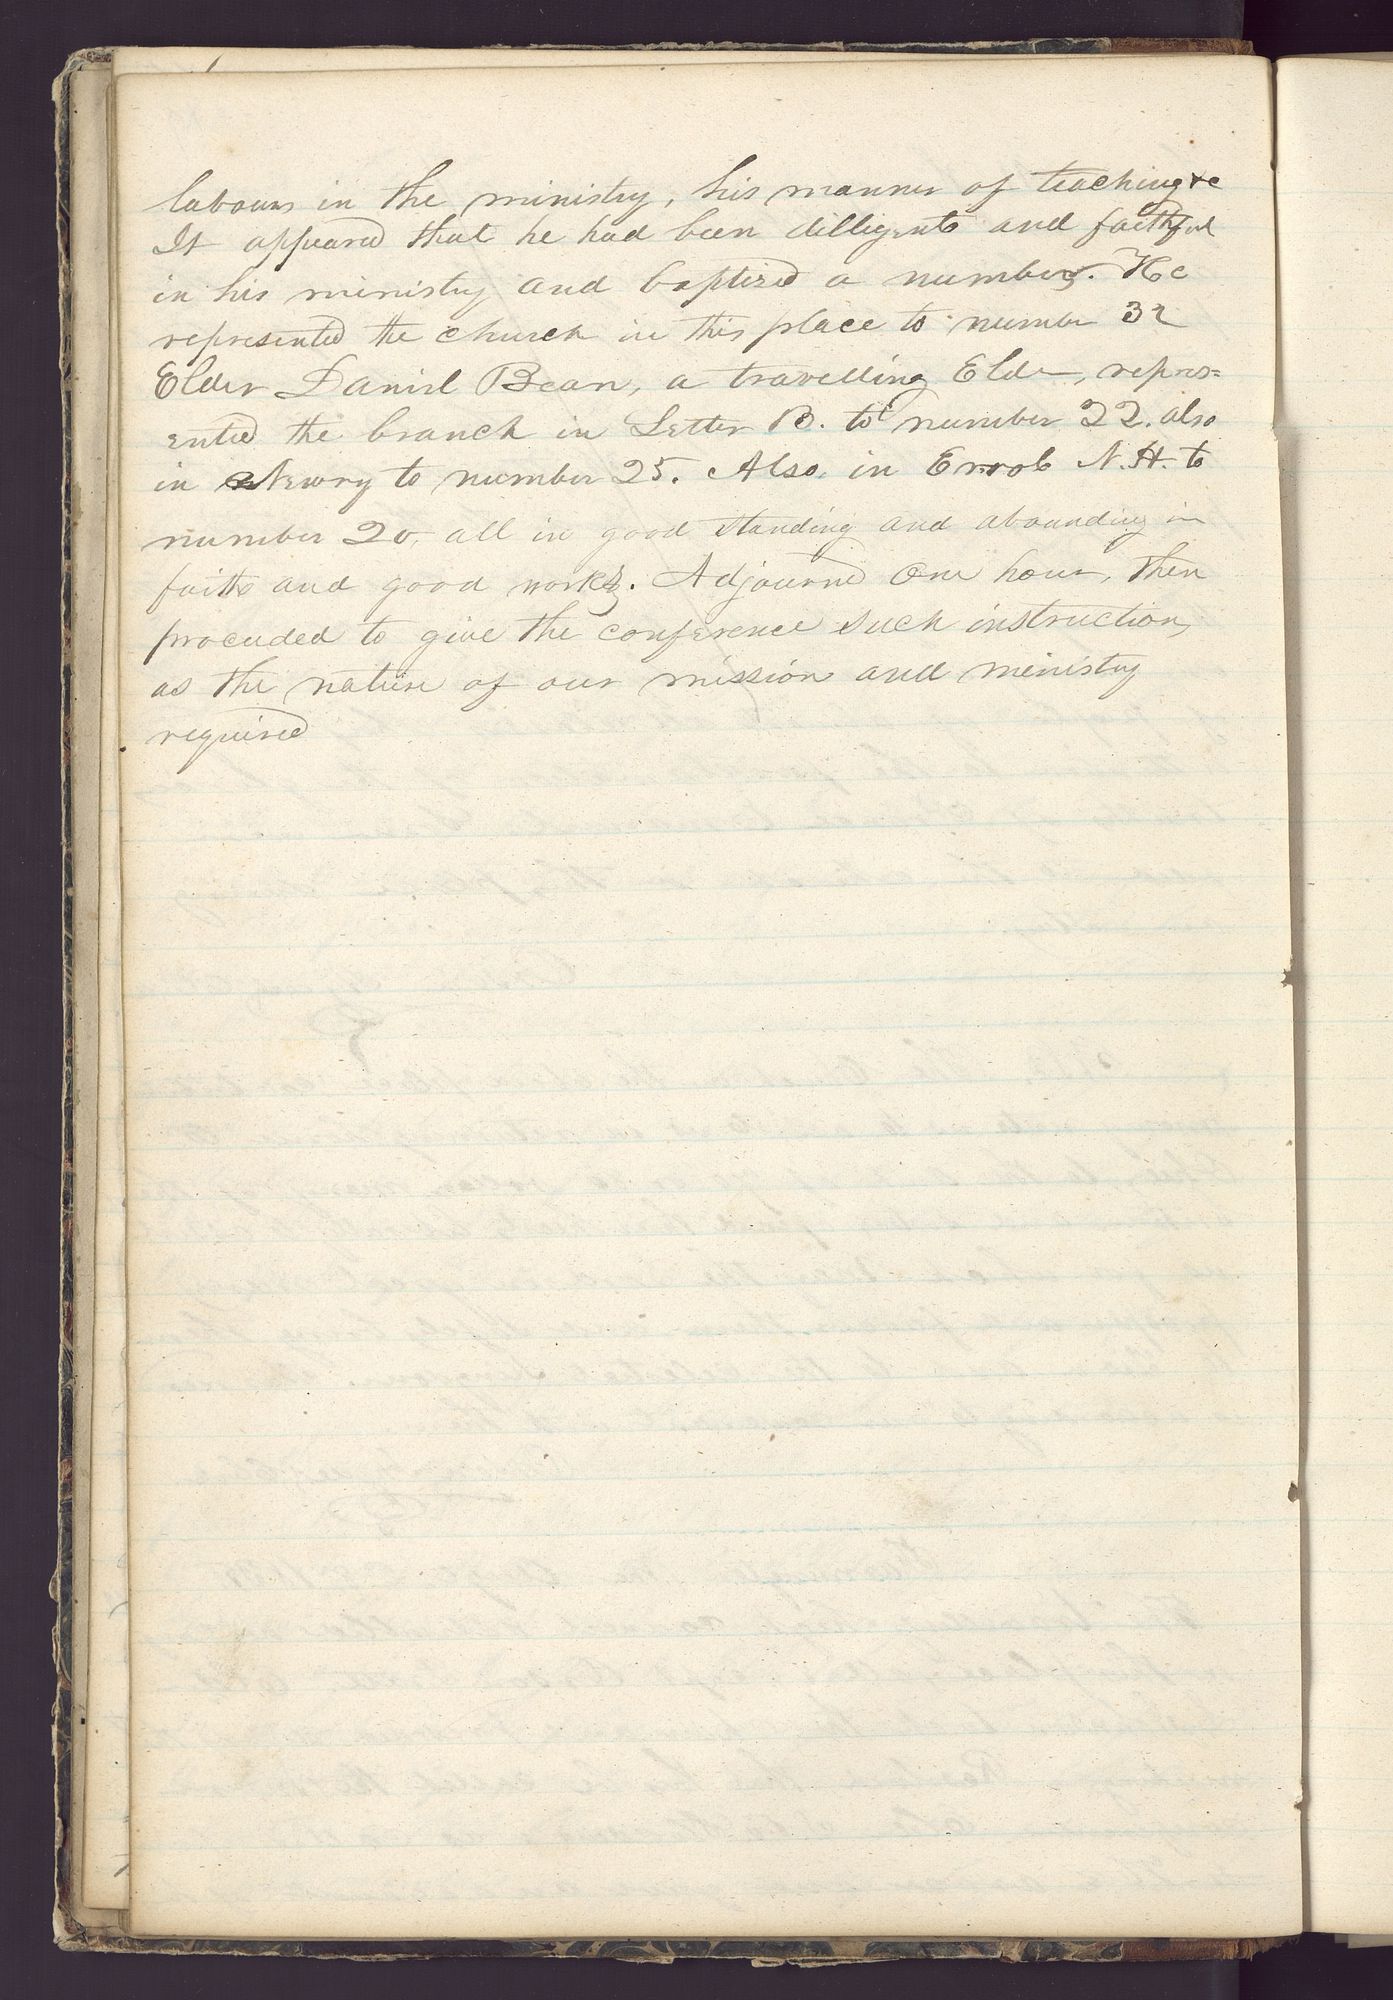 labours in the ministry, his manner of teaching &c
It appeared that he had been dilligent and faithful
in his ministry and baptized a number. He
represented the church in this place to number 32
Elder Daniel Bean, a travelling Elder, repres=
ented the branch in Letter B. to number 22. also
in Newry to number 25. Also, in Errol N.H. to
number 20, all in good standing and abounding in
faith and good works. Adjourned one hour, then
proceeded to give the conference such instruction,
as the nature of our mission and ministry
required